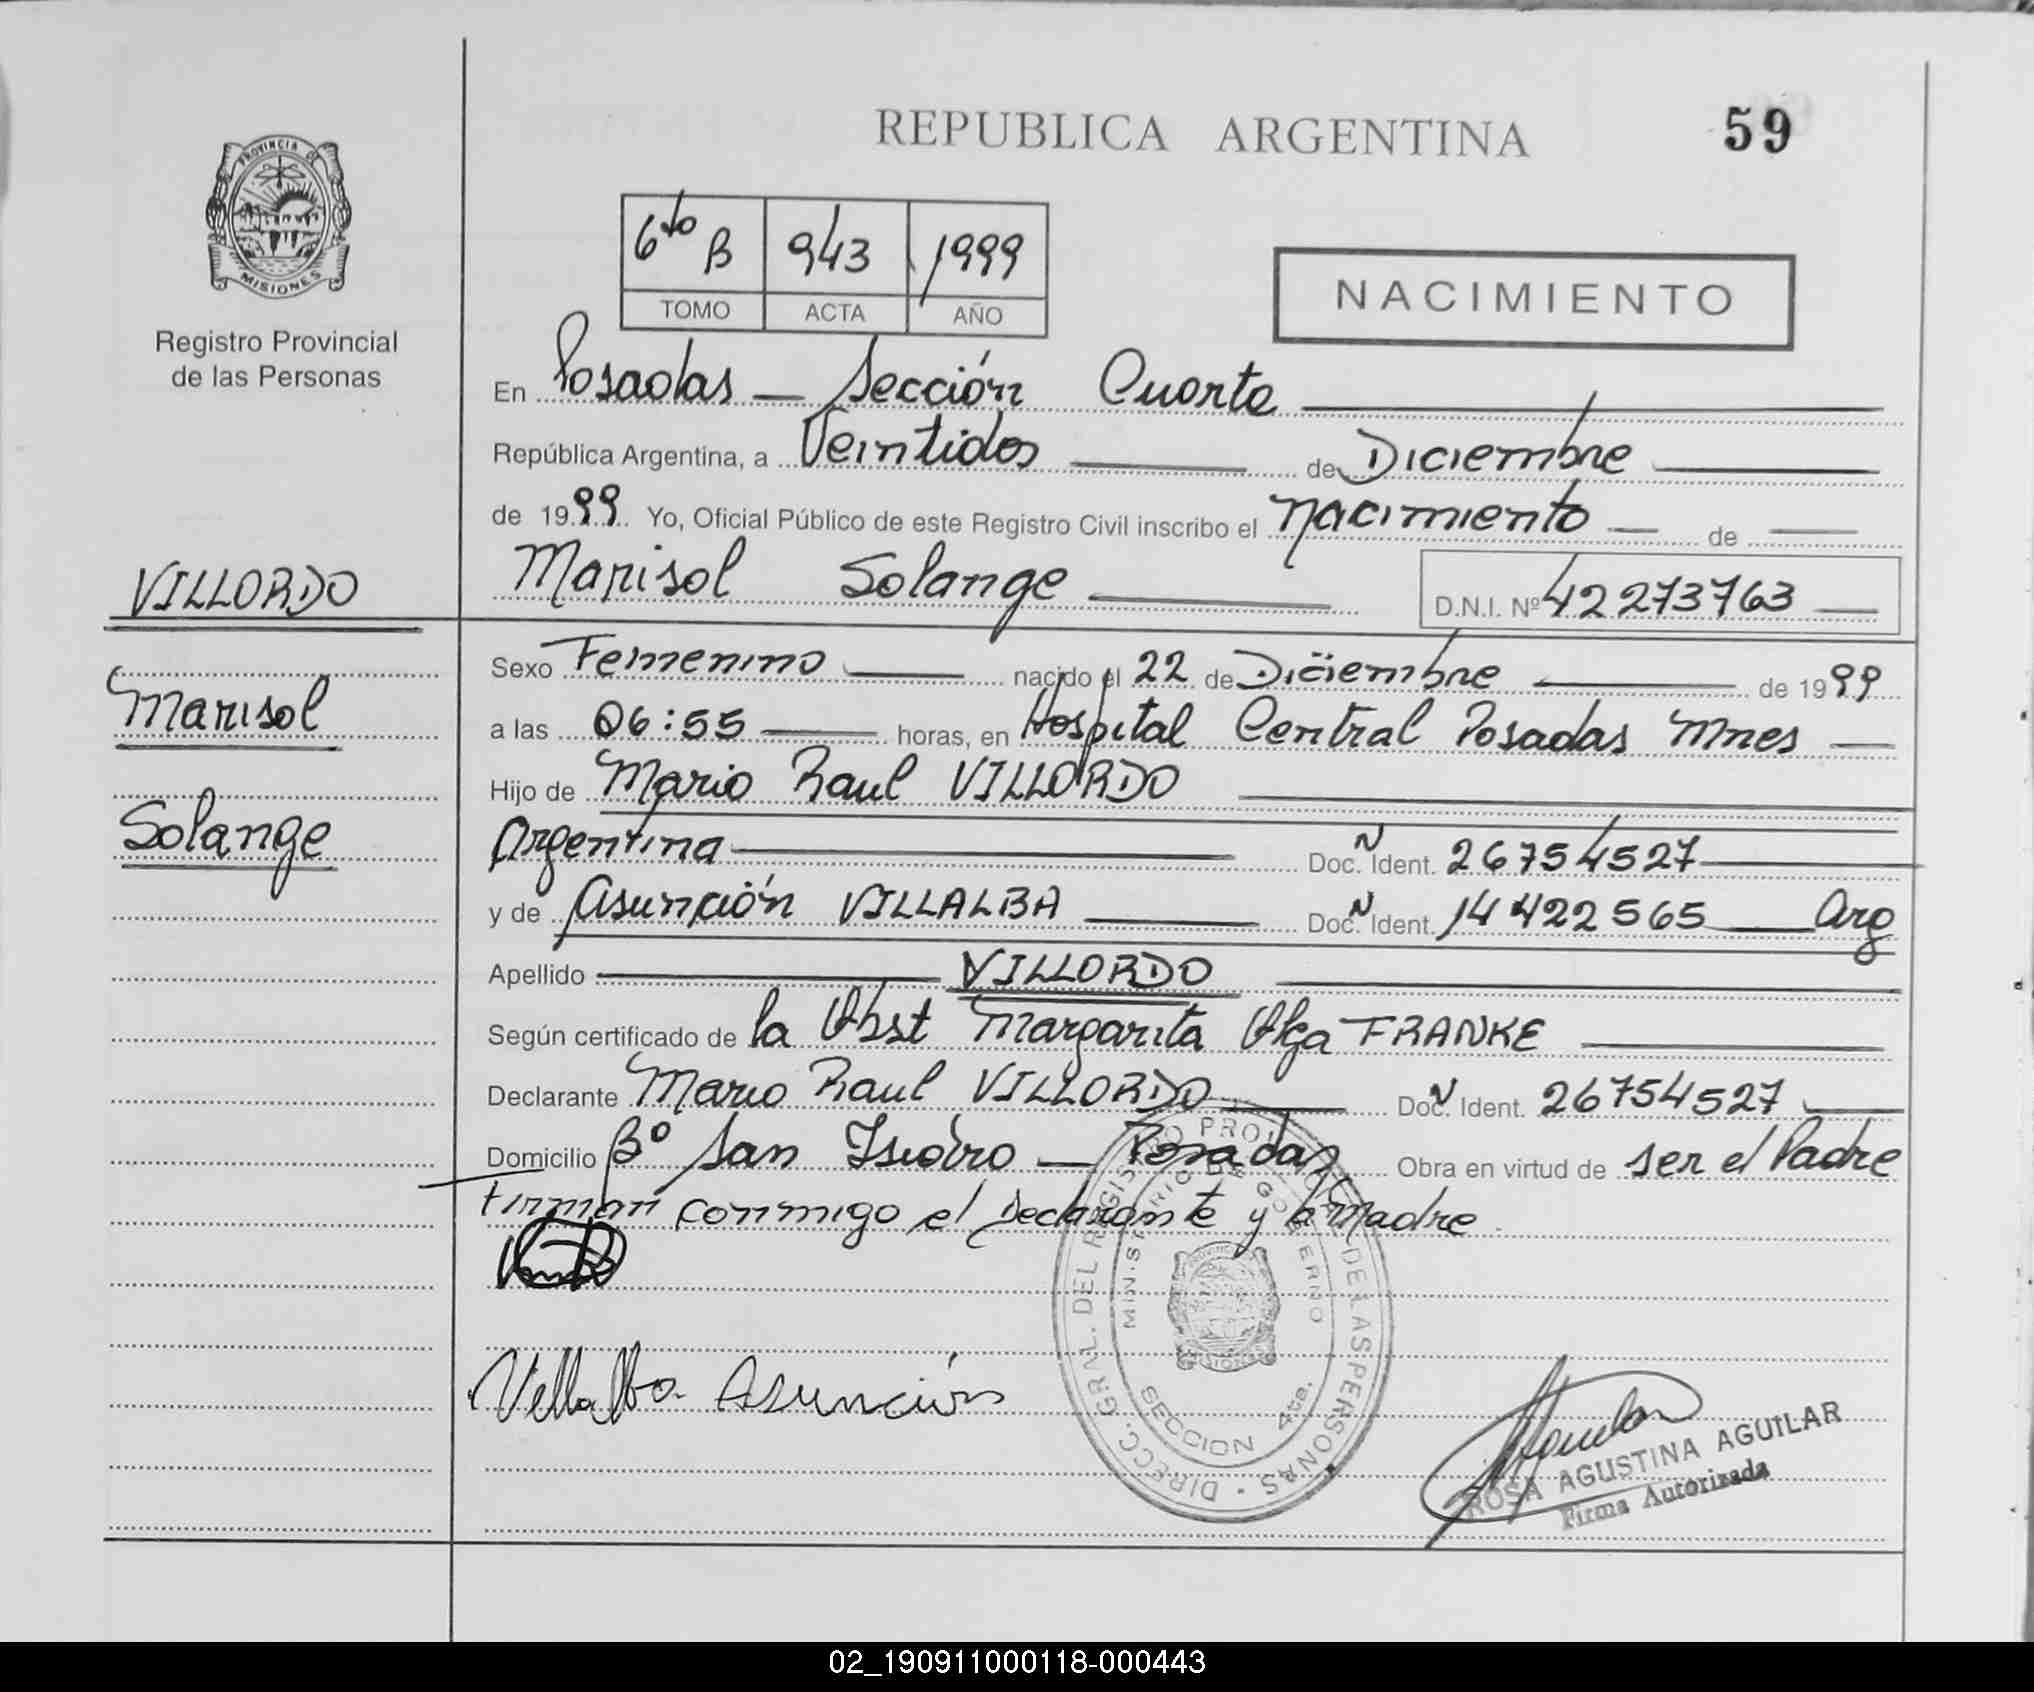 REPUBLICA ARGENTINA
59
PROVINCIA DE
MISIONES
Registro Provincial
de las Personas
6to B 943 1999
TOMO ACTA AÑO
NACIMIENTO
En Posadas — Sección Cuarta
República Argentina, a Veintidos de Diciembre
de 1999 Yo, Oficial Público de este Registro Civil inscribo el nacimiento de
Marisol Solange D.N.I. Nº 42273763
VILLORDO
Marisol
Solange
Sexo Femenino nacido el 22 de Diciembre de 1999
a las 06:55 horas, en Hospital Central Posadas Mnes
Hijo de Mario Raul VILLORDO
Argentina Doc. Ident. N 26754527
y de Asunción VILLALBA Doc. Ident. N 14422565 Arg
Apellido VILLORDO
Según certificado de la Obst Margarita Olga FRANKE
Declarante Mario Raul VILLORDO Doc. Ident. N 26754527
Domicilio Bº San Isidro — Posadas Obra en virtud de ser el Padre
Firman conmigo el declarante y la Madre
Villalba Asunción
DIRECC. GRAL. DEL REGISTRO PROVINCIAL DE LAS PERSONAS
MINISTERIO DE GOBIERNO
SECCION 4ta.
ROSA AGUSTINA AGUILAR
Firma Autorizada
02_190911000118-000443